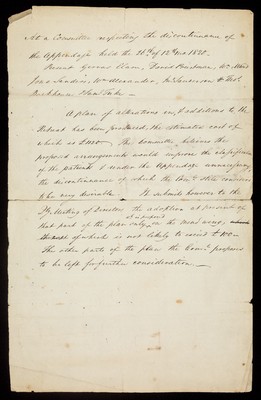 At a Committee respecting the discontinuance of
the Appendage held the 26th of 12 mo 1822.
Present
David Priestman, Wm
Wm Alexander, & Thos.
A plan of alterations and additions to the
Retreat has been produced, the estimated cost of
which is The Committee believes the
proposed arrangements would improve the classification
of the patients & render the Appendage unnecessary,
the discontinuance of which the Come. still considers
to be very desirable. It submits however to the
Qy. Meeting of Directors the adoption at present of
that part of the plan only, in the Mens wing,
of which is not likely to exceed £
The other parts of the plan the Come. proposes
to be left for further consideration